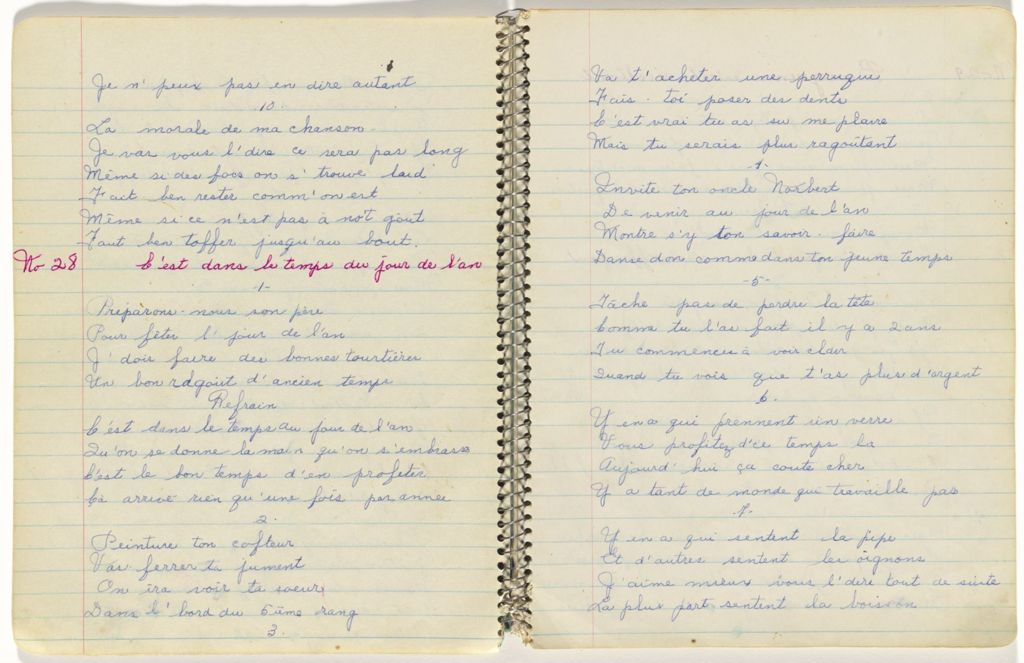 Je n'peux pas en dire autant
10.
La morale de ma chanson
Je vas vous l'dire ce sera pas long
Même si des fois on s'trouve laid
Faut ben rester comm'on est
Même si ce n'est pas à not goût
Faut ben toffer jusqu'au bout.
No 28 C'est dans le temps du jour de l'an
-1-
Préparons-nous son père
Pour fêter l'jour de l'an
J'dois faire des bonnes tourtières
Un bon ragoût d'ancien temps
Refrain
C'est dans le temps du jour de l'an
Qu'on se donne la main qu'on s'embrasse
C'est le bon temps d'en profiter
Ca arrive rien qu'une fois par année
2.
Peinture ton cotteur
Vas ferrer ta jument
On ira voir ta soeur
Dans l'bord du 5ième rang
3.
Va t'acheter une perruque
Fais-toi poser des dents
C'est vrai tu as su me plaire
Mais tu serais plus ragoûtant
-4-
Invite ton oncle Norbert
De venir au jour de l'an
Montre s'y ton savoir-faire
Danse don comme dans ton jeune temps
-5-
Tâche pas de perdre la tête
Comme tu l'as fait il y a 2 ans
Tu commences à voir clair
Quand tu vois que t'as plus d'argent
6.
Y en a qui prennent un verre
Vous profitez d'ce temps la
Aujourd'hui ça coute cher
Y a tant de monde qui travaille pas
-7-
Y en a qui sentent la pipe
Et d'autres sentent les oignons
J'aime mieux vous l'dire tout de suite
La plus part sentent la boisson